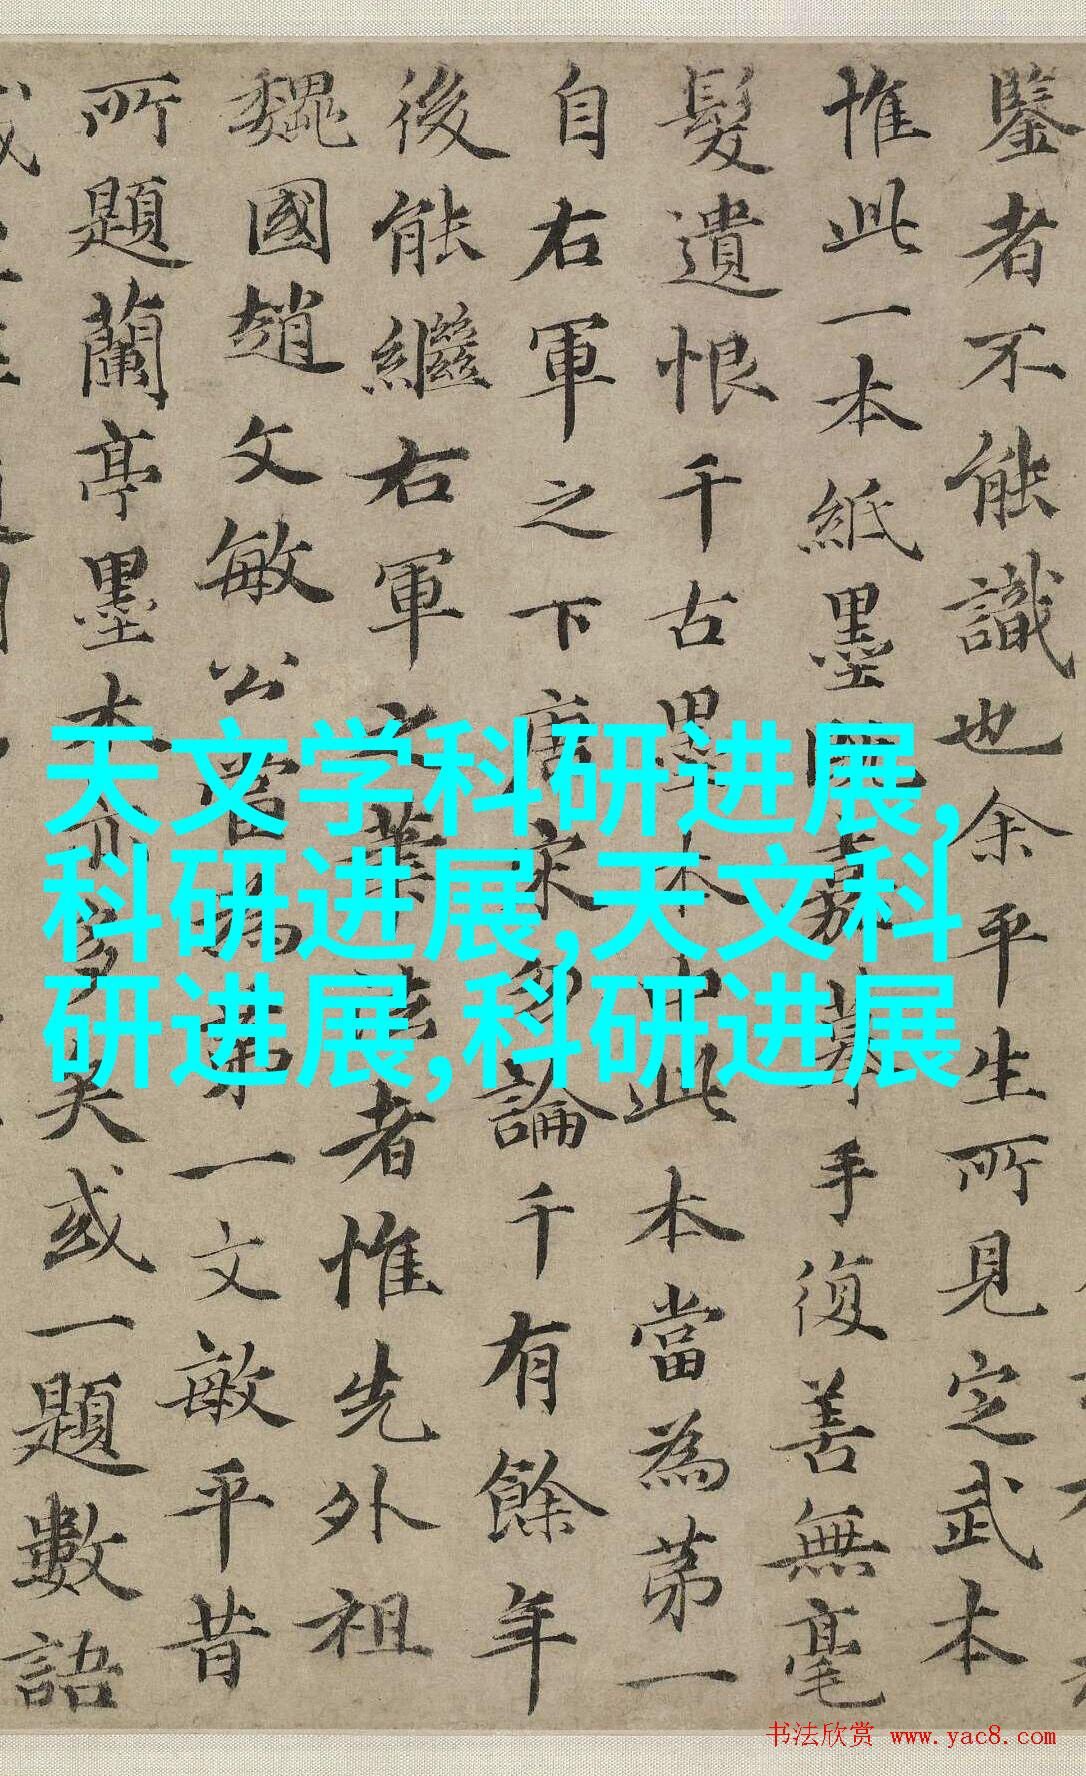 鑒者不能識也余平生所見定武本
惟此一本紙墨 嘉摹手復善無毫
髮遺恨千古墨本中此本當為苐一
自右軍之下唐宋 論千有餘年
後能繼右軍之業 者惟先外祖
魏國趙文敏公當為苐一文敏平昔
所題蘭亭墨本亦多矣或一題數語
天文学科研进展,
科研进展,天文科
研进展,科研进展
书法欣赏 www.yac8.com